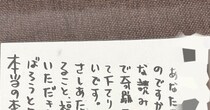 あなた
のですが
な読み
で奇跡
て下てり
いです。
さしあた
ること、短
いただき
ばろうと
本当の本